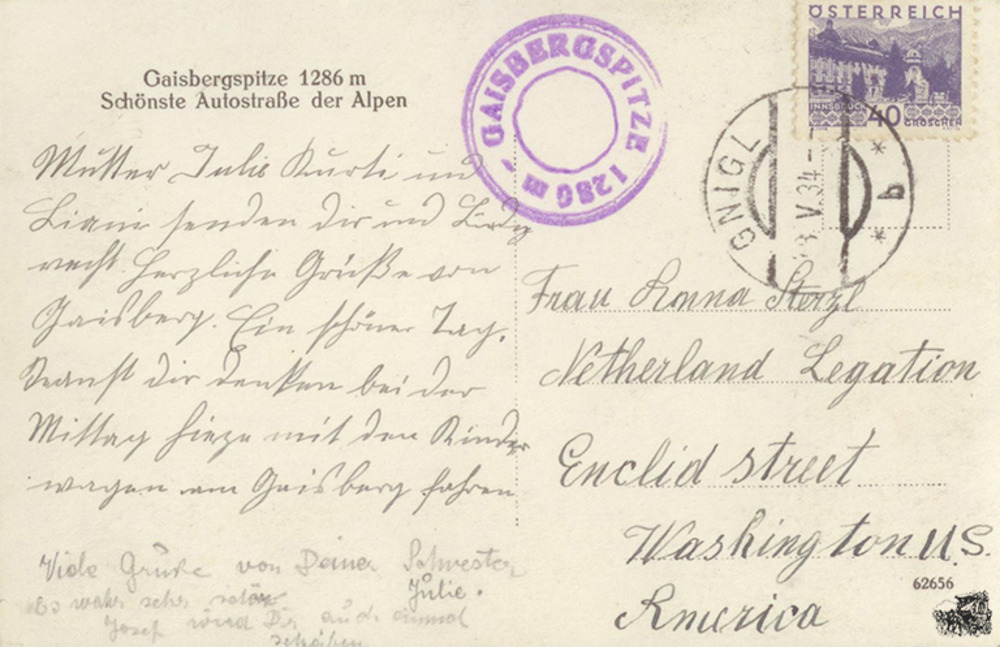 Gaisbergspitze 1286 m
Schönste Autostraße der Alpen
GAISBERGSPITZE 1286 m
ÖSTERREICH
INNSBRUCK 40 GROSCHEN
GNIGL
V.34
b
Mutter Julie Kurti und
senden dir und
recht herzliche Grüße von
Gaisberg. Ein schöner Tag.
Kannst dir denken bei der
Mittag Hieze mit den Kinder
wagen am Gaisberg fahren
Viele Grüße von Deiner Schwester
Julie.
Es
Josef wird Dir auch einmal
schreiben
Frau Anna Sterzl
Netherland Legation
Enclid street
Washington U.S.
America
62656